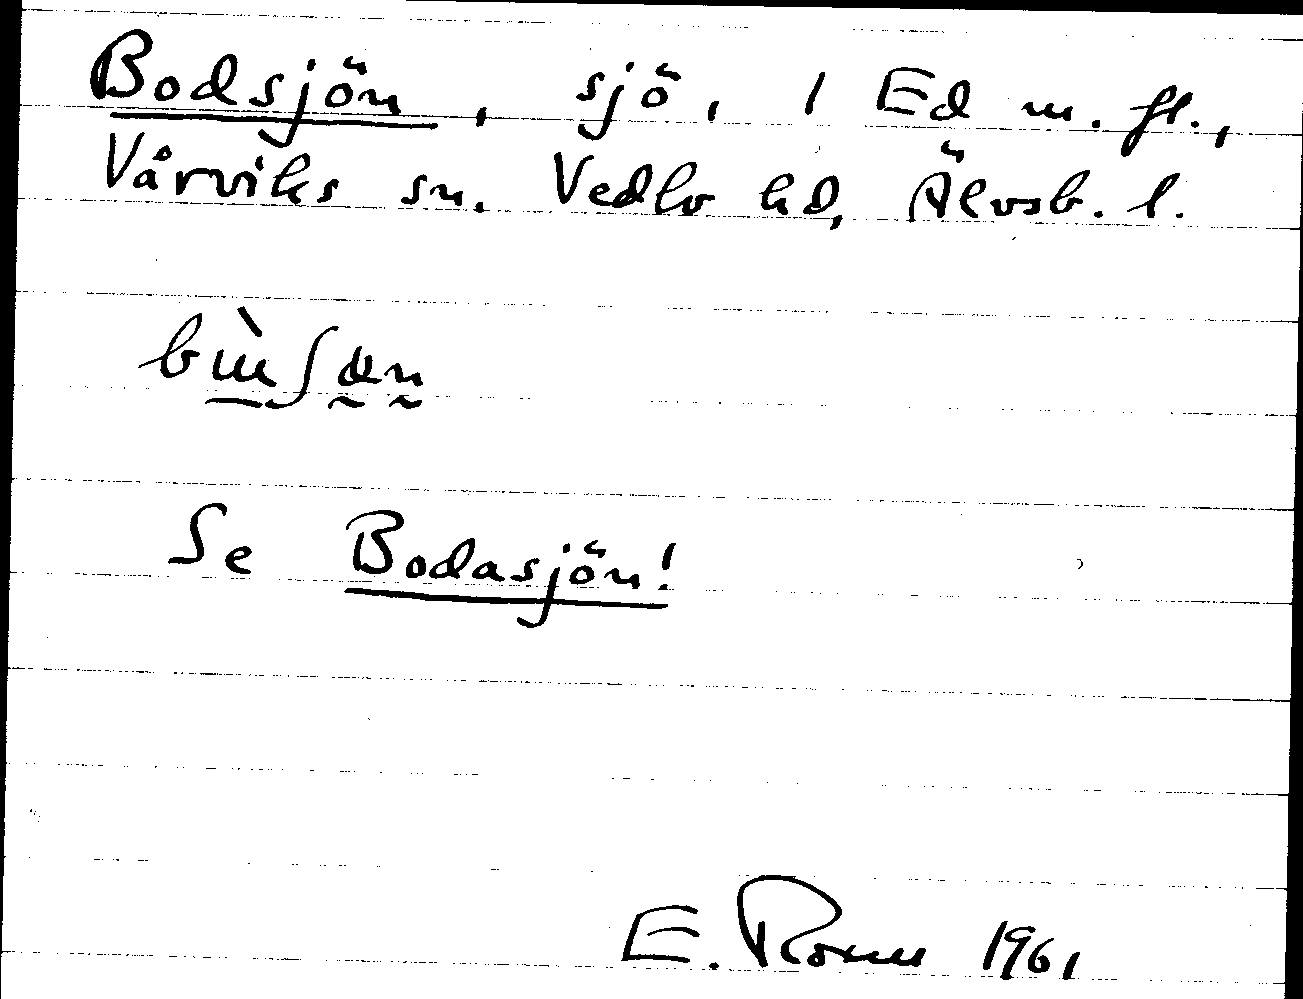 Bodsjön, sjö, 1 Ed m. fl.,
Vårviks sn. Vedbo hd, Älvsb. l.
Se Bodasjön!
E. 1961